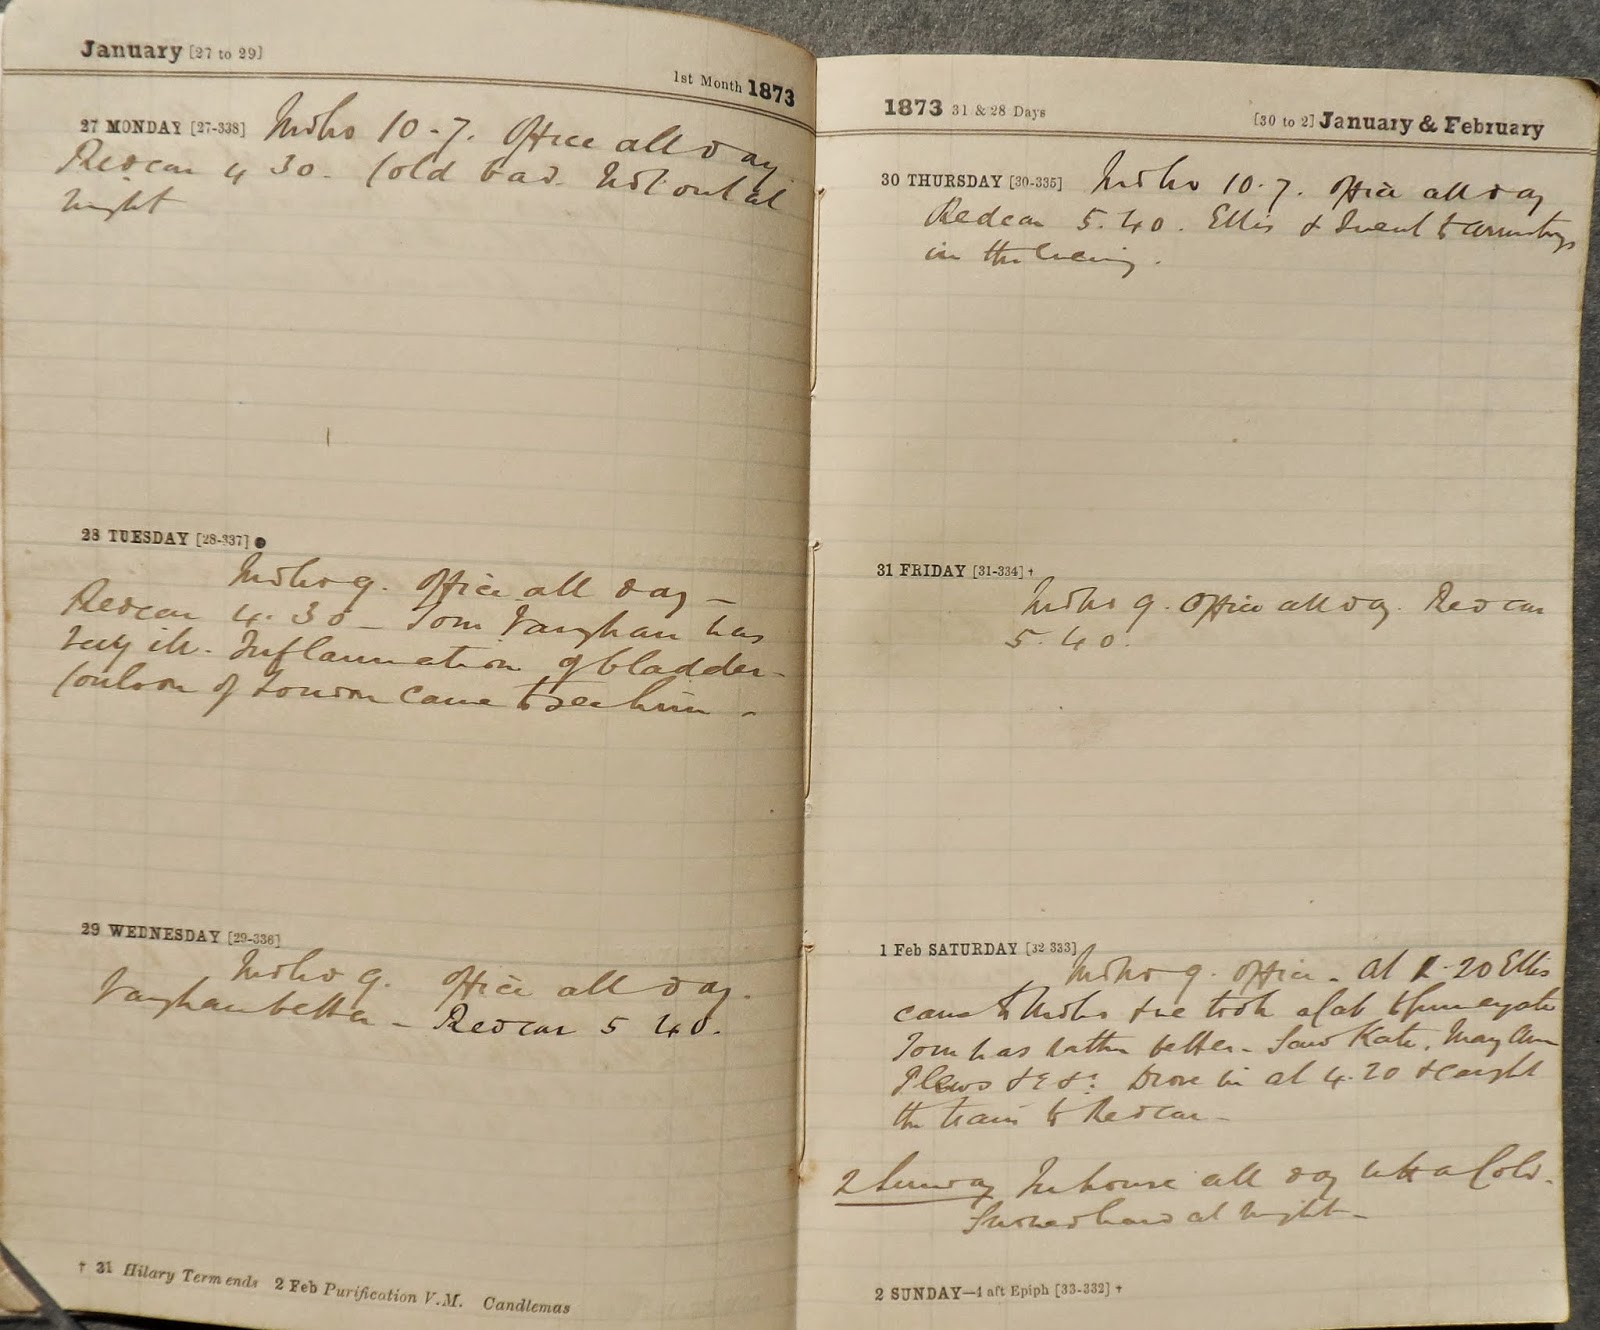 January [27 to 29]
1st Month 1873
27 MONDAY [27-338] Mdbro 10-7. Office all day
Redcar 4 30. Cold bad. Not out at
night
28 TUESDAY [28-337]
Mdbro 9. Office all day —
Redcar 4.30 — Tom Vaughan has
very ill. Inflammation of bladder —
Coulson of London came to see him —
29 WEDNESDAY [29-336]
Mdbro 9. Office all day.
Vaughan better — Redcar 5 40.
† 31 Hilary Term ends 2 Feb Purification V.M. Candlemas
1873 31 & 28 Days
[30 to 2] January & February
30 THURSDAY [30-335] Mdbro 10.7. Office all day
Redcar 5.40. Ellis & I went to
in the evening.
31 FRIDAY [31-334] †
Mdbro 9. Office all day. Redcar
5.40.
1 Feb SATURDAY [32-333]
Mdbro 9. Office — At 1.20 Ellis
came to Mdbro & we took a Cab to
Tom has rather better — Saw Kate, May Ann
Plews &c &c. Drove in at 4.20 & caught
the train to Redcar —
2 Sunday In house all day with a Cold.
Snowed hard at night —
2 SUNDAY—4 aft Epiph [33-332] †